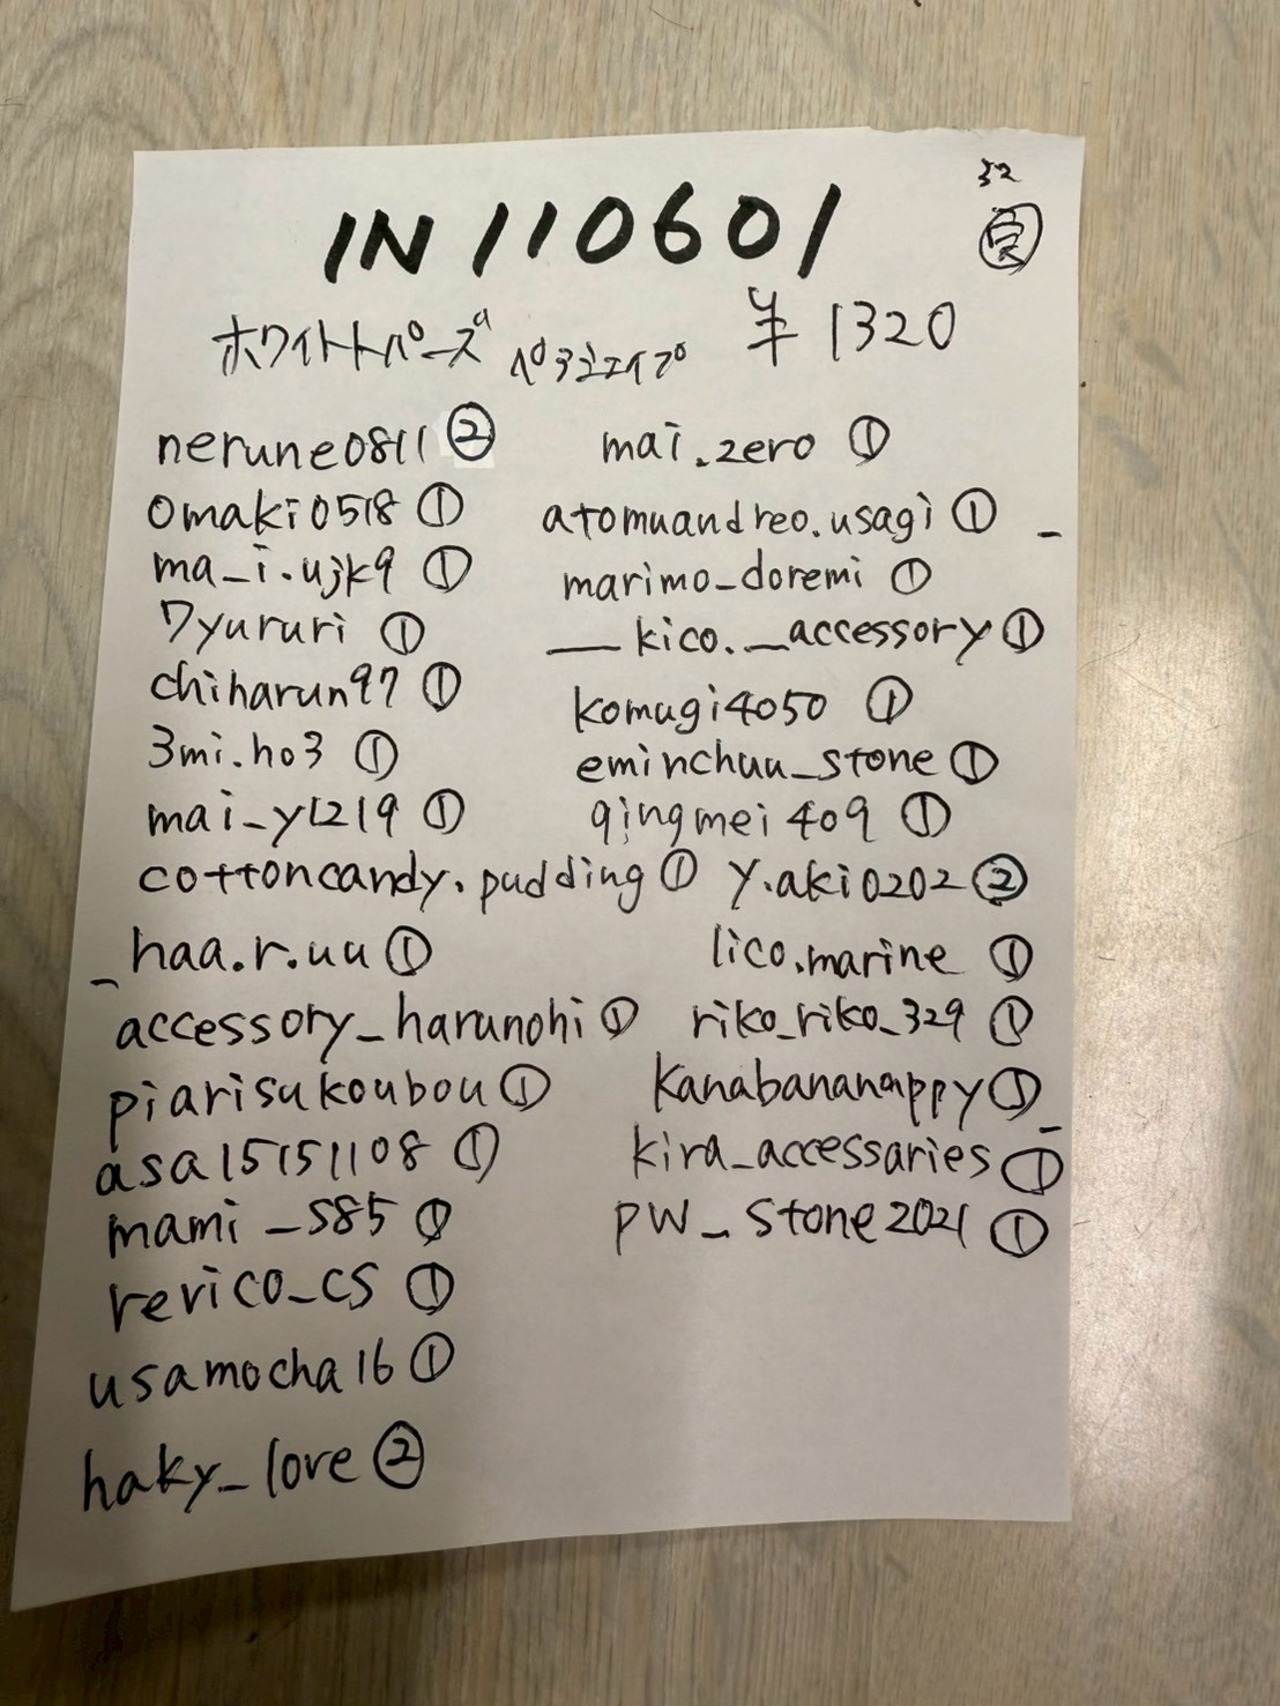 32
良
IN110601
ホワイトトパーズ ペアシェイプ ¥1320
nerune0811 ② mai.zero ①
omaki0518 ① atomuandreo.usagi ① _
ma_i.ujk9 ① marimo_doremi ①
7yururi ① __kico._accessory ①
chiharun97 ① komugi4050 ①
3mi.ho3 ① eminchuu_stone ①
mai_y1219 ① qingmei409 ①
cottoncandy.pudding ① y.aki0202 ②
_haa.r.uu ① lico.marine ①
accessory_harunohi ① riko_riko_329 ①
piarisukoubou ① kanabananappy ① _
asa15151108 ① kira_accessaries ①
mami_s85 ① pw_stone2021 ①
rerico_cs ①
usamocha16 ①
haky_love ②